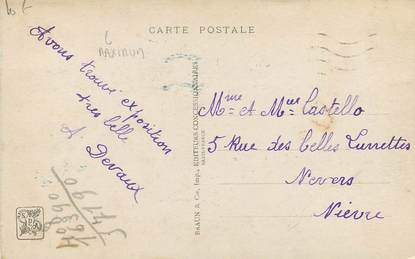 CARTE POSTALE
6
MAXIMUM
Avons trouvé exposition
très belle
A Devaux
Mme et Mces Castello
5 Rue des belles Lunettes
Nevers
Nièvre
BRAUN & Cie, Impr. EDITEURS CONCESSIONNAIRES